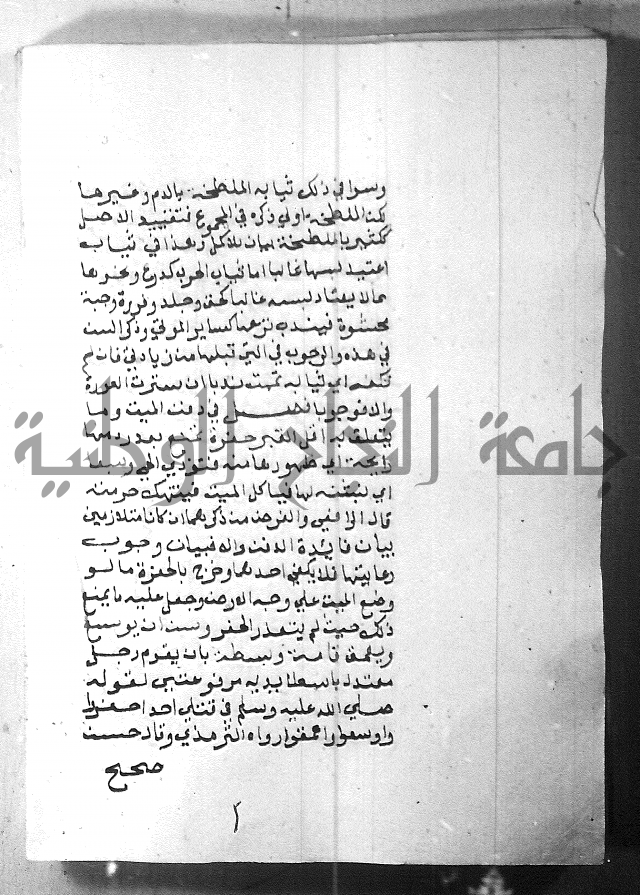 وسوا في ذلك ثيابه الملطخة بالدم وغيرها
لكن الملطخة اولي ذكره في المجموع فتقييد الاصل
ككثير بالملطخة لبيان الاكمل وهذا في ثياب
اعتيد لبسها غالبا اما ثياب الحرب كدرع ونحوها
مما لا يعتاد لبسه غالبا كخف وجلد وفروة وجبة
محشوة فيندب نزعها كساير الموتي وذكر السن
في هذه والوجوب في التي قبلها من زيادتي فان لم
تكفه اي ثيابه تممت ندبا ان سترت العورة
والا فوجوبا فصل في دفن الميت وما
يتعلق به اقل القبر حفرة تمنع بعد ردمها
رايحة اي ظهورها منه فتؤذي الحي وسبعا
اي نبشه لها فياكل الميت فينتهك حرمته
قال الرافعي والغرض من ذكرهما ان كانا متلازمين
بيان فايدة الدفن والا فبيان وجوب
رعايتهما فلا يكفي احدهما وخرج بالحفرة ما لو
وضع الميت علي وجه الارض وجعل عليه ما يمنع
ذلك حيث لم يتعذر الحفر وسن ان يوسع
ويعمق قامة وبسطة بان يقوم رجل
معتدل باسطا يديه مرفوعتين لقوله
صلي الله عليه وسلم في قتلي احد احفروا
واوسعوا واعمقوا رواه الترمذي وقال حسن
صحيح
جامعة النجاح الوطنية